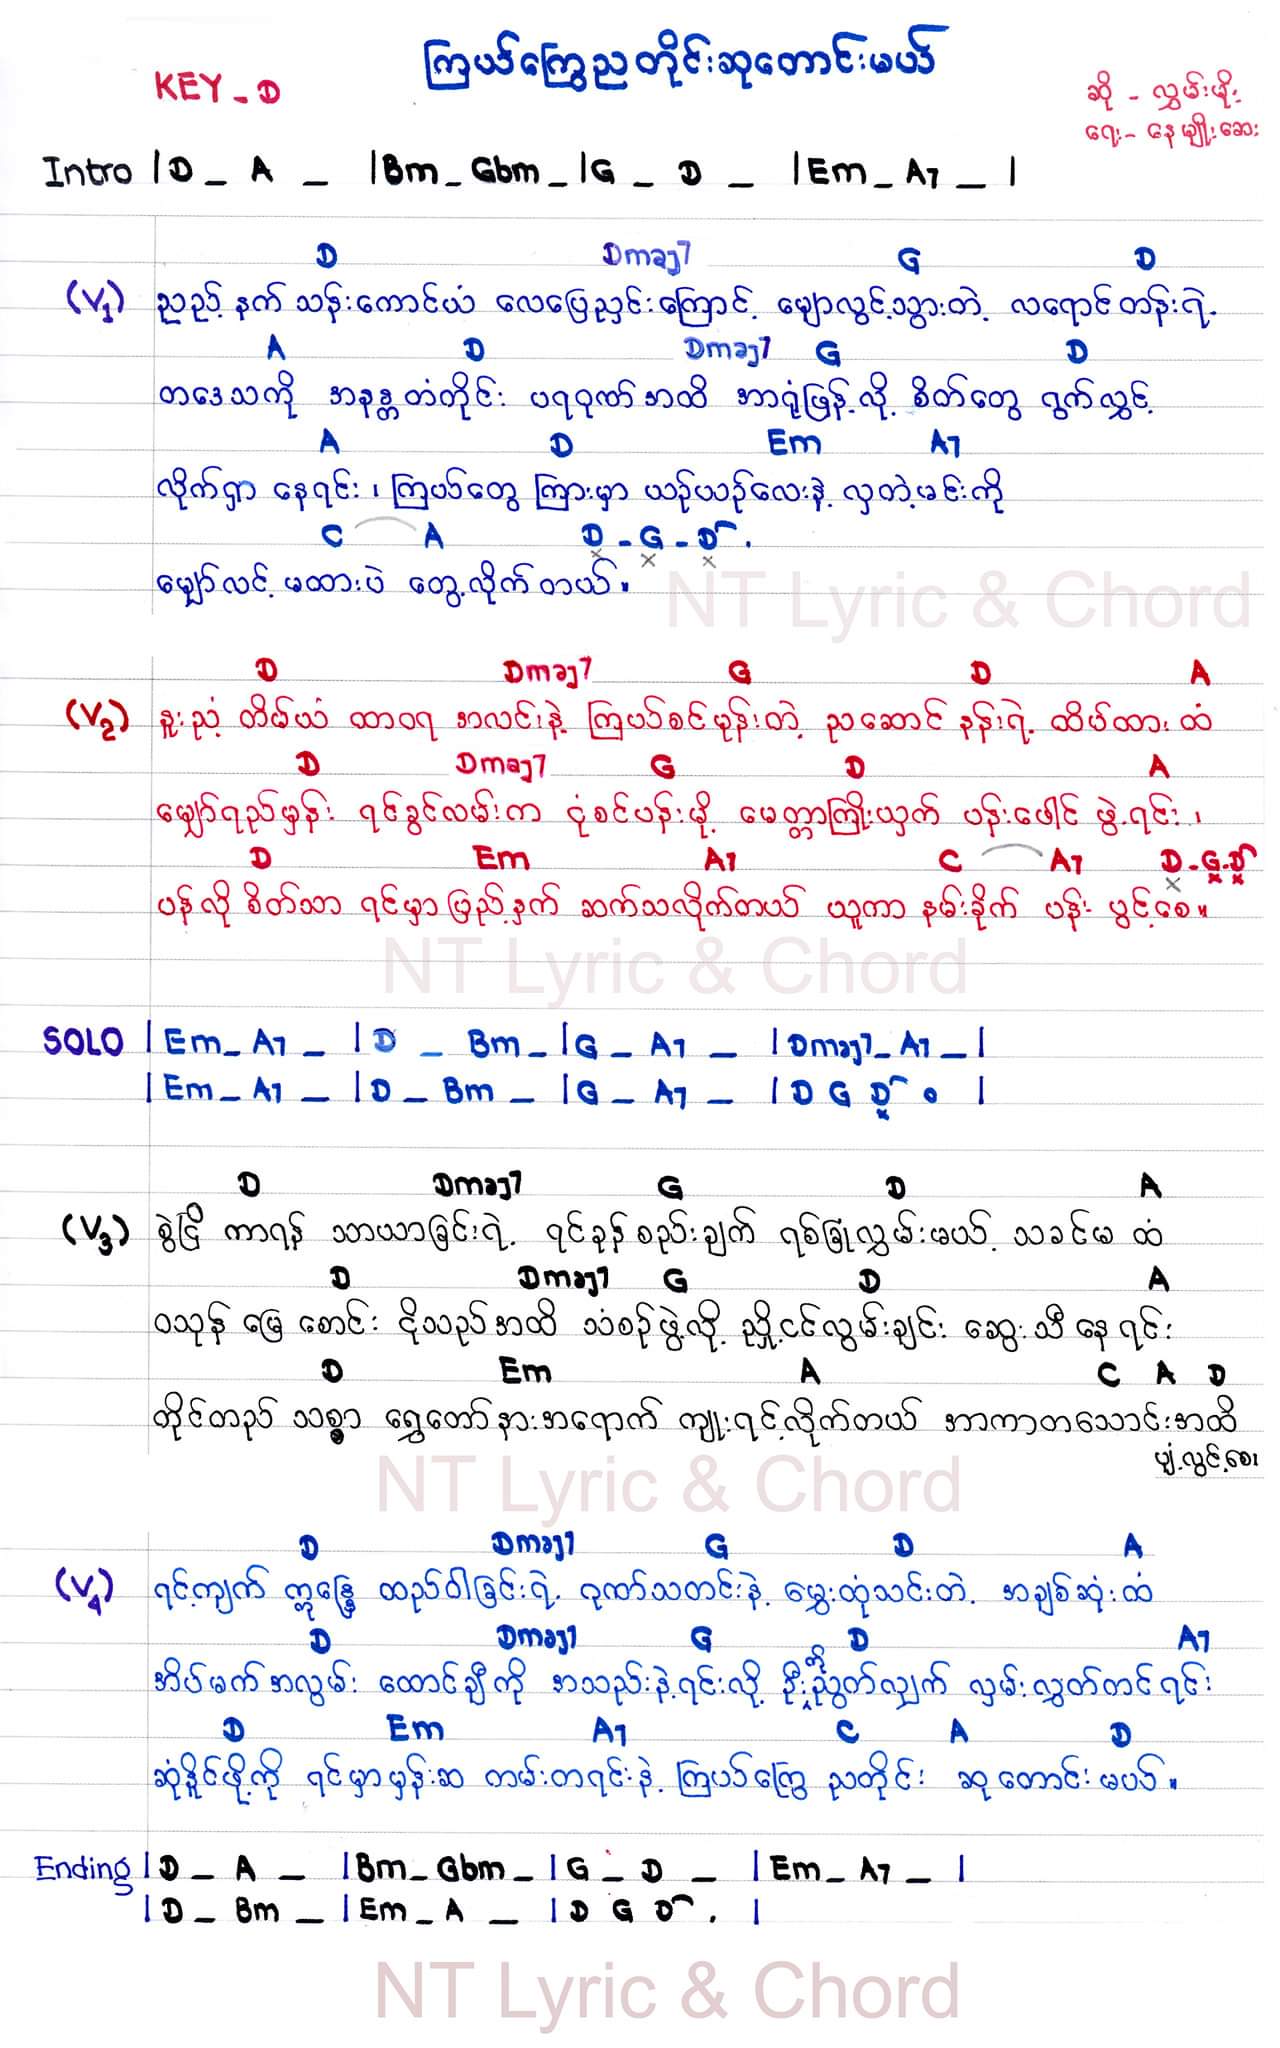 ကြယ်ကြွေညတိုင်းဆုတောင်းမယ်
KEY - D
ဆို - လွှမ်းမိုး
ရေး - နေမျိုးဆေး
Intro |D _ A _ |Bm _ Gbm _ |G _ D _ |Em _ A7 _ |
D Dmaj7 G D
(V1) ညည့်နက် သန်းကောင်ယံ လေပြေညှင်းကြောင့် မျောလွင့်သွားတဲ့ လရောင်တန်းရဲ့
A D Dmaj7 G D
တဒေသကို အနန္တတံတိုင်း ပရဝုဏ်အထိ အာရုံဖြန့်လို့ စိတ်တွေ ရွက်လွှင့်
A D Em A7
လိုက်ရှာ နေရင်း ၊ ကြယ်တွေ ကြားမှာ ယဉ်ယဉ်လေးနဲ့ လှတဲ့မင်းကို
C A D - G - D .
မျှော်လင့် မထားပဲ တွေ့လိုက်တယ်။
NT Lyric & Chord
D Dmaj7 G D A
(V2) နူးညံ့ တိမ်ယံ ထာဝရ အလင်းနဲ့ ကြယ်စင်မုန်းတဲ့ ညဆောင် နန်းရဲ့ ထိပ်ထား ထံ
D Dmaj7 G D A
မျှော်ရည်မှန်း ရင်ခွင်လမ်းက ငုံစင်ပန်းမို့ မေတ္တာကြိုးယှက် ပန်းပေါင် ဖွဲ့ရင်း ၊
D Em A7 C A7 D - G - D
ပန်လို စိတ်သာ ရင်မှာပြည့်နှက် ဆက်သလိုက်တယ် ယူကာ နမ်းခိုက် ပန်း ပွင့်စေ။
NT Lyric & Chord
SOLO |Em _ A7 _ |D _ Bm _ |G _ A7 _ |Dmaj7 _ A7 _ |
|Em _ A7 _ |D _ Bm _ |G _ A7 _ |D G D o |
D Dmaj7 G D A
(V3) စွဲငြိ ကာရန် သာယာခြင်းရဲ့ ရင်ခုန်စည်းချက် ရစ်ခြုံလွှမ်းမယ့် သခင်မ ထံ
D Dmaj7 G D A
ဝသုန် မြေ စောင်း ငိုသည်အထိ သံစဉ်ဖွဲ့လို့ ညှို့ငင်လွမ်းချင်း ဆွေးသီ နေ ရင်း
D Em A C A D
တိုင်တည် သစ္စာ ရွှေတော်နားအရောက် ကျူးရင့်လိုက်တယ် အာကာတသောင်းအထိ
ပျံ့လွင့်စေ
NT Lyric & Chord
D Dmaj7 G D A
(V4) ရင့်ကျက် ဣန္ဒြေ ထည်ဝါခြင်းရဲ့ ဂုဏ်သတင်းနဲ့ မွှေးထုံသင်းတဲ့ အချစ်ဆုံးထံ
D Dmaj7 G D A7
အိပ်မက်အလွမ်း ထောင်ချီကို အသည်းနဲ့ရင်းလို့ ဦးညွှတ်လျှက် လှမ်းလွှတ်တင်ရင်း
D Em A7 C A D
ဆုံနိုင်ဖို့ကို ရင်မှာမှန်းဆ တမ်းတရင်းနဲ့ ကြယ်ကြွေ ညတိုင်း ဆု တောင်းမယ်။
Ending |D _ A _ |Bm _ Gbm _ |G _ D _ |Em _ A7 _ |
|D _ Bm _ |Em _ A _ |D G D . |
NT Lyric & Chord